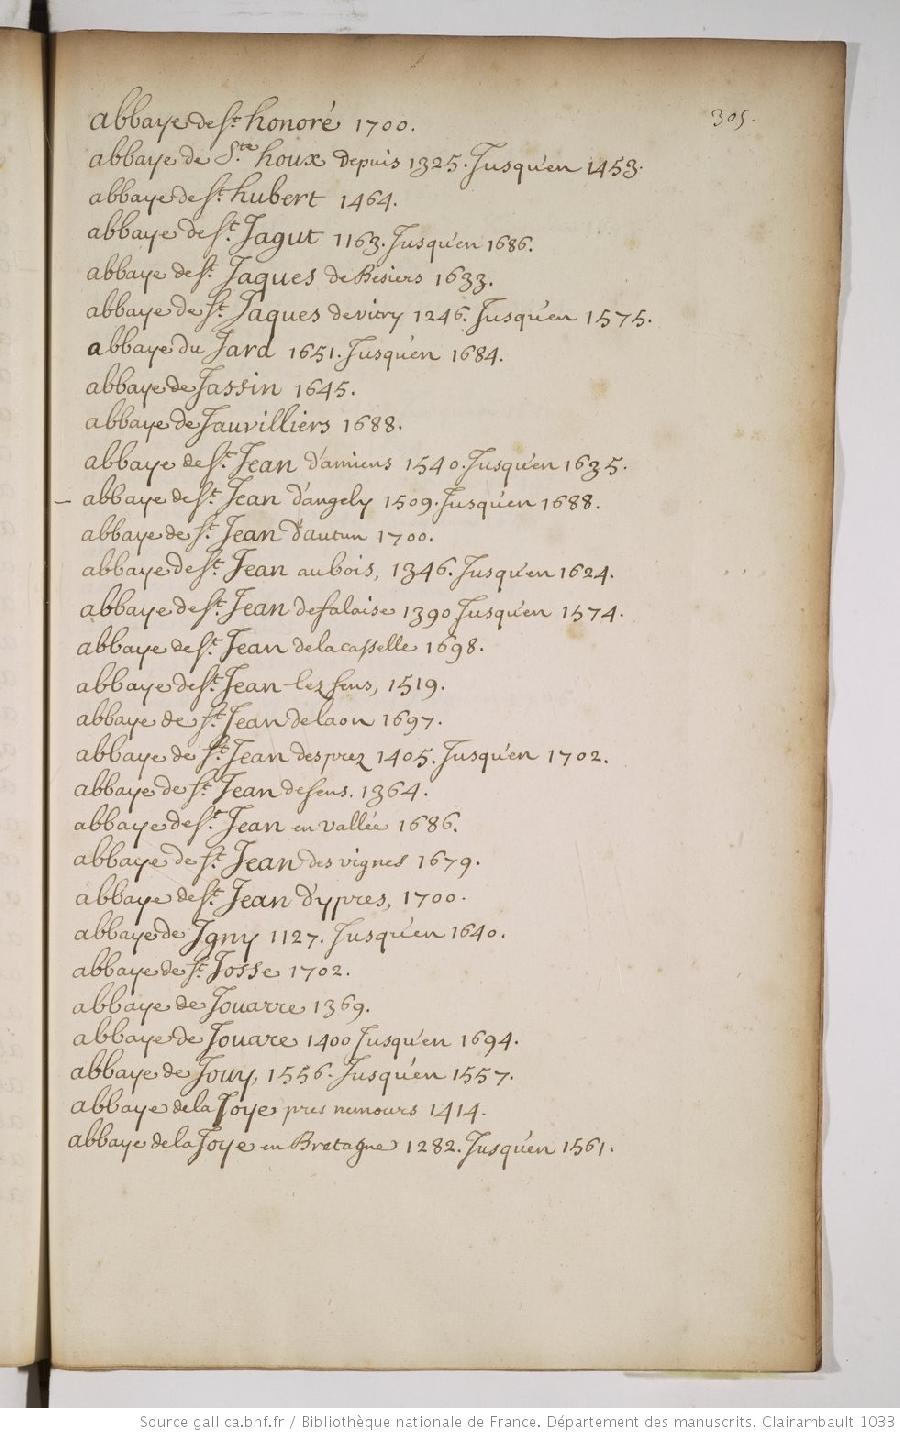 305.
abbaye de st honoré 1700.
abbaye de Ste houx depuis 1325. Jusqu'en 1453.
abbaye de st hubert 1464.
abbaye de st Jagut 1163. Jusqu'en 1686.
abbaye de st Jaques de Besiers 1633.
abbaye de st Jaques de vitry 1246. Jusqu'en 1575.
abbaye du Jard 1651. Jusqu'en 1684.
abbaye de Jassin 1645.
abbaye de Jauvilliers 1688.
abbaye de st Jean d'amiens 1540. Jusqu'en 1635.
– abbaye de st Jean d'angely 1509. Jusqu'en 1688.
abbaye de st Jean d'autun 1700.
abbaye de st Jean au bois, 1346. Jusqu'en 1624.
abbaye de st Jean de falaise 1390 Jusqu'en 1574.
abbaye de st Jean de la casselle 1698.
abbaye de st Jean lez sens, 1519.
abbaye de st Jean de laon 1697.
abbaye de st Jean des prez 1405. Jusqu'en 1702.
abbaye de st Jean de sens. 1364.
abbaye de st Jean en vallée 1686.
abbaye de st Jean des vignes 1679.
abbaye de st Jean d'ypres, 1700.
abbaye de Jgny 1127. Jusqu'en 1640.
abbaye de st Josse 1702.
abbaye de Jouarre 1369.
abbaye de Jouare 1400 Jusqu'en 1694.
abbaye de Jouy, 1556. Jusqu'en 1557.
abbaye de la Joye pres nemours 1414.
abbaye de la Joye en Bretagne 1282. Jusqu'en 1561.
Source gallica.bnf.fr / Bibliothèque nationale de France. Département des manuscrits. Clairambault 1033